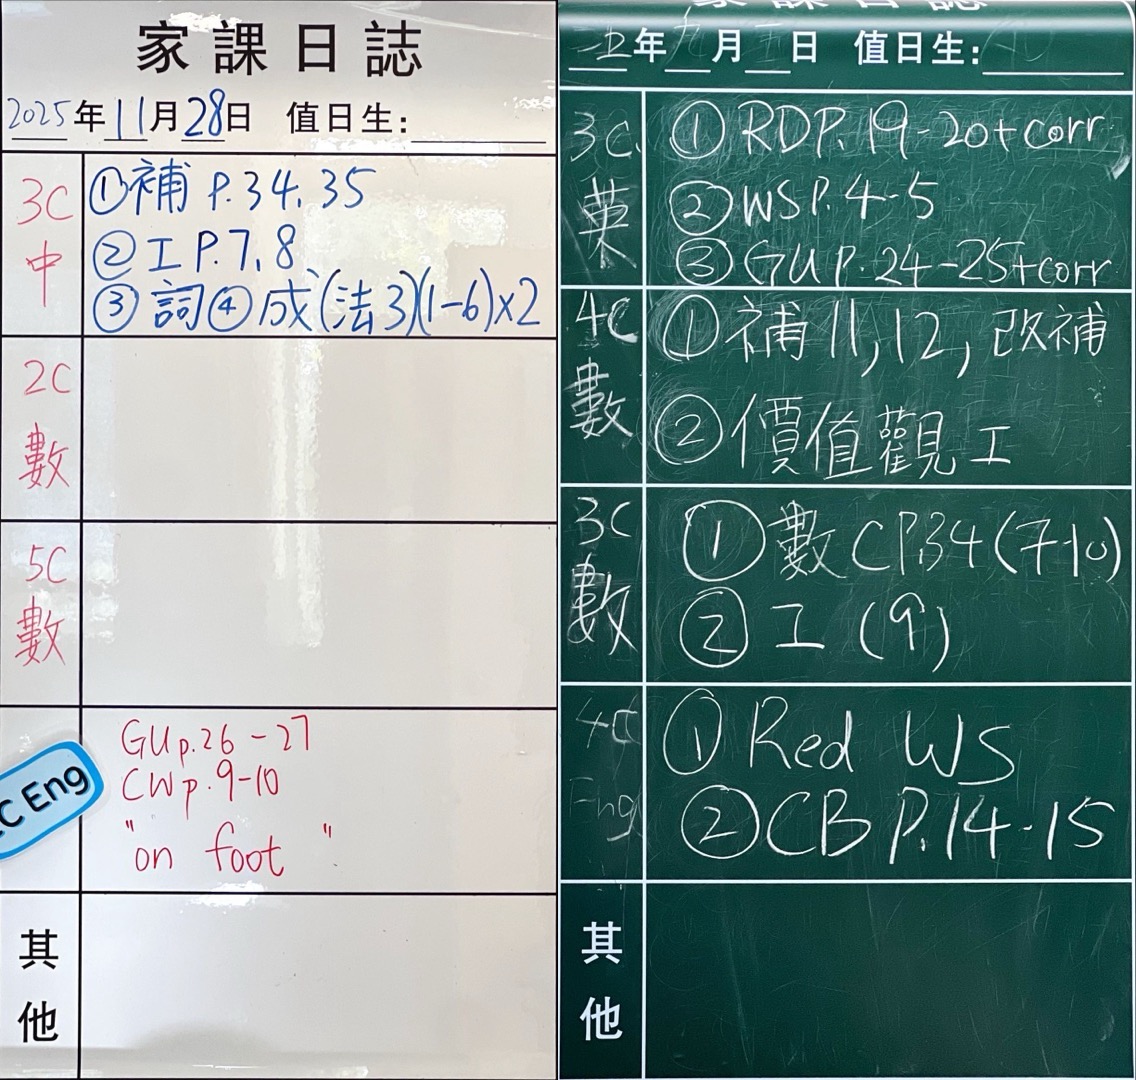 家課日誌
2025年11月28日 值日生:
3C
中
①補 P.34,35
②工P.7,8
③詞④成(法3)(1-6)x2
2C
數
5C
數
C Eng
GUp.26-27
CWp.9-10
"on foot"
其
他
家課日誌
年 月 日 值日生:
3C
英
①RDP.19-20+corr
②WSP.4-5
③GUP.24-25+corr
4C
數
①補11,12,改補
②價值觀工
3C
數
①數CP.34(7-10)
②工(9)
4C
Eng
①Red WS
②CB P.14-15
其
他